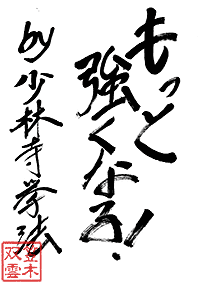 もっと
強くなる!
by少林寺拳法